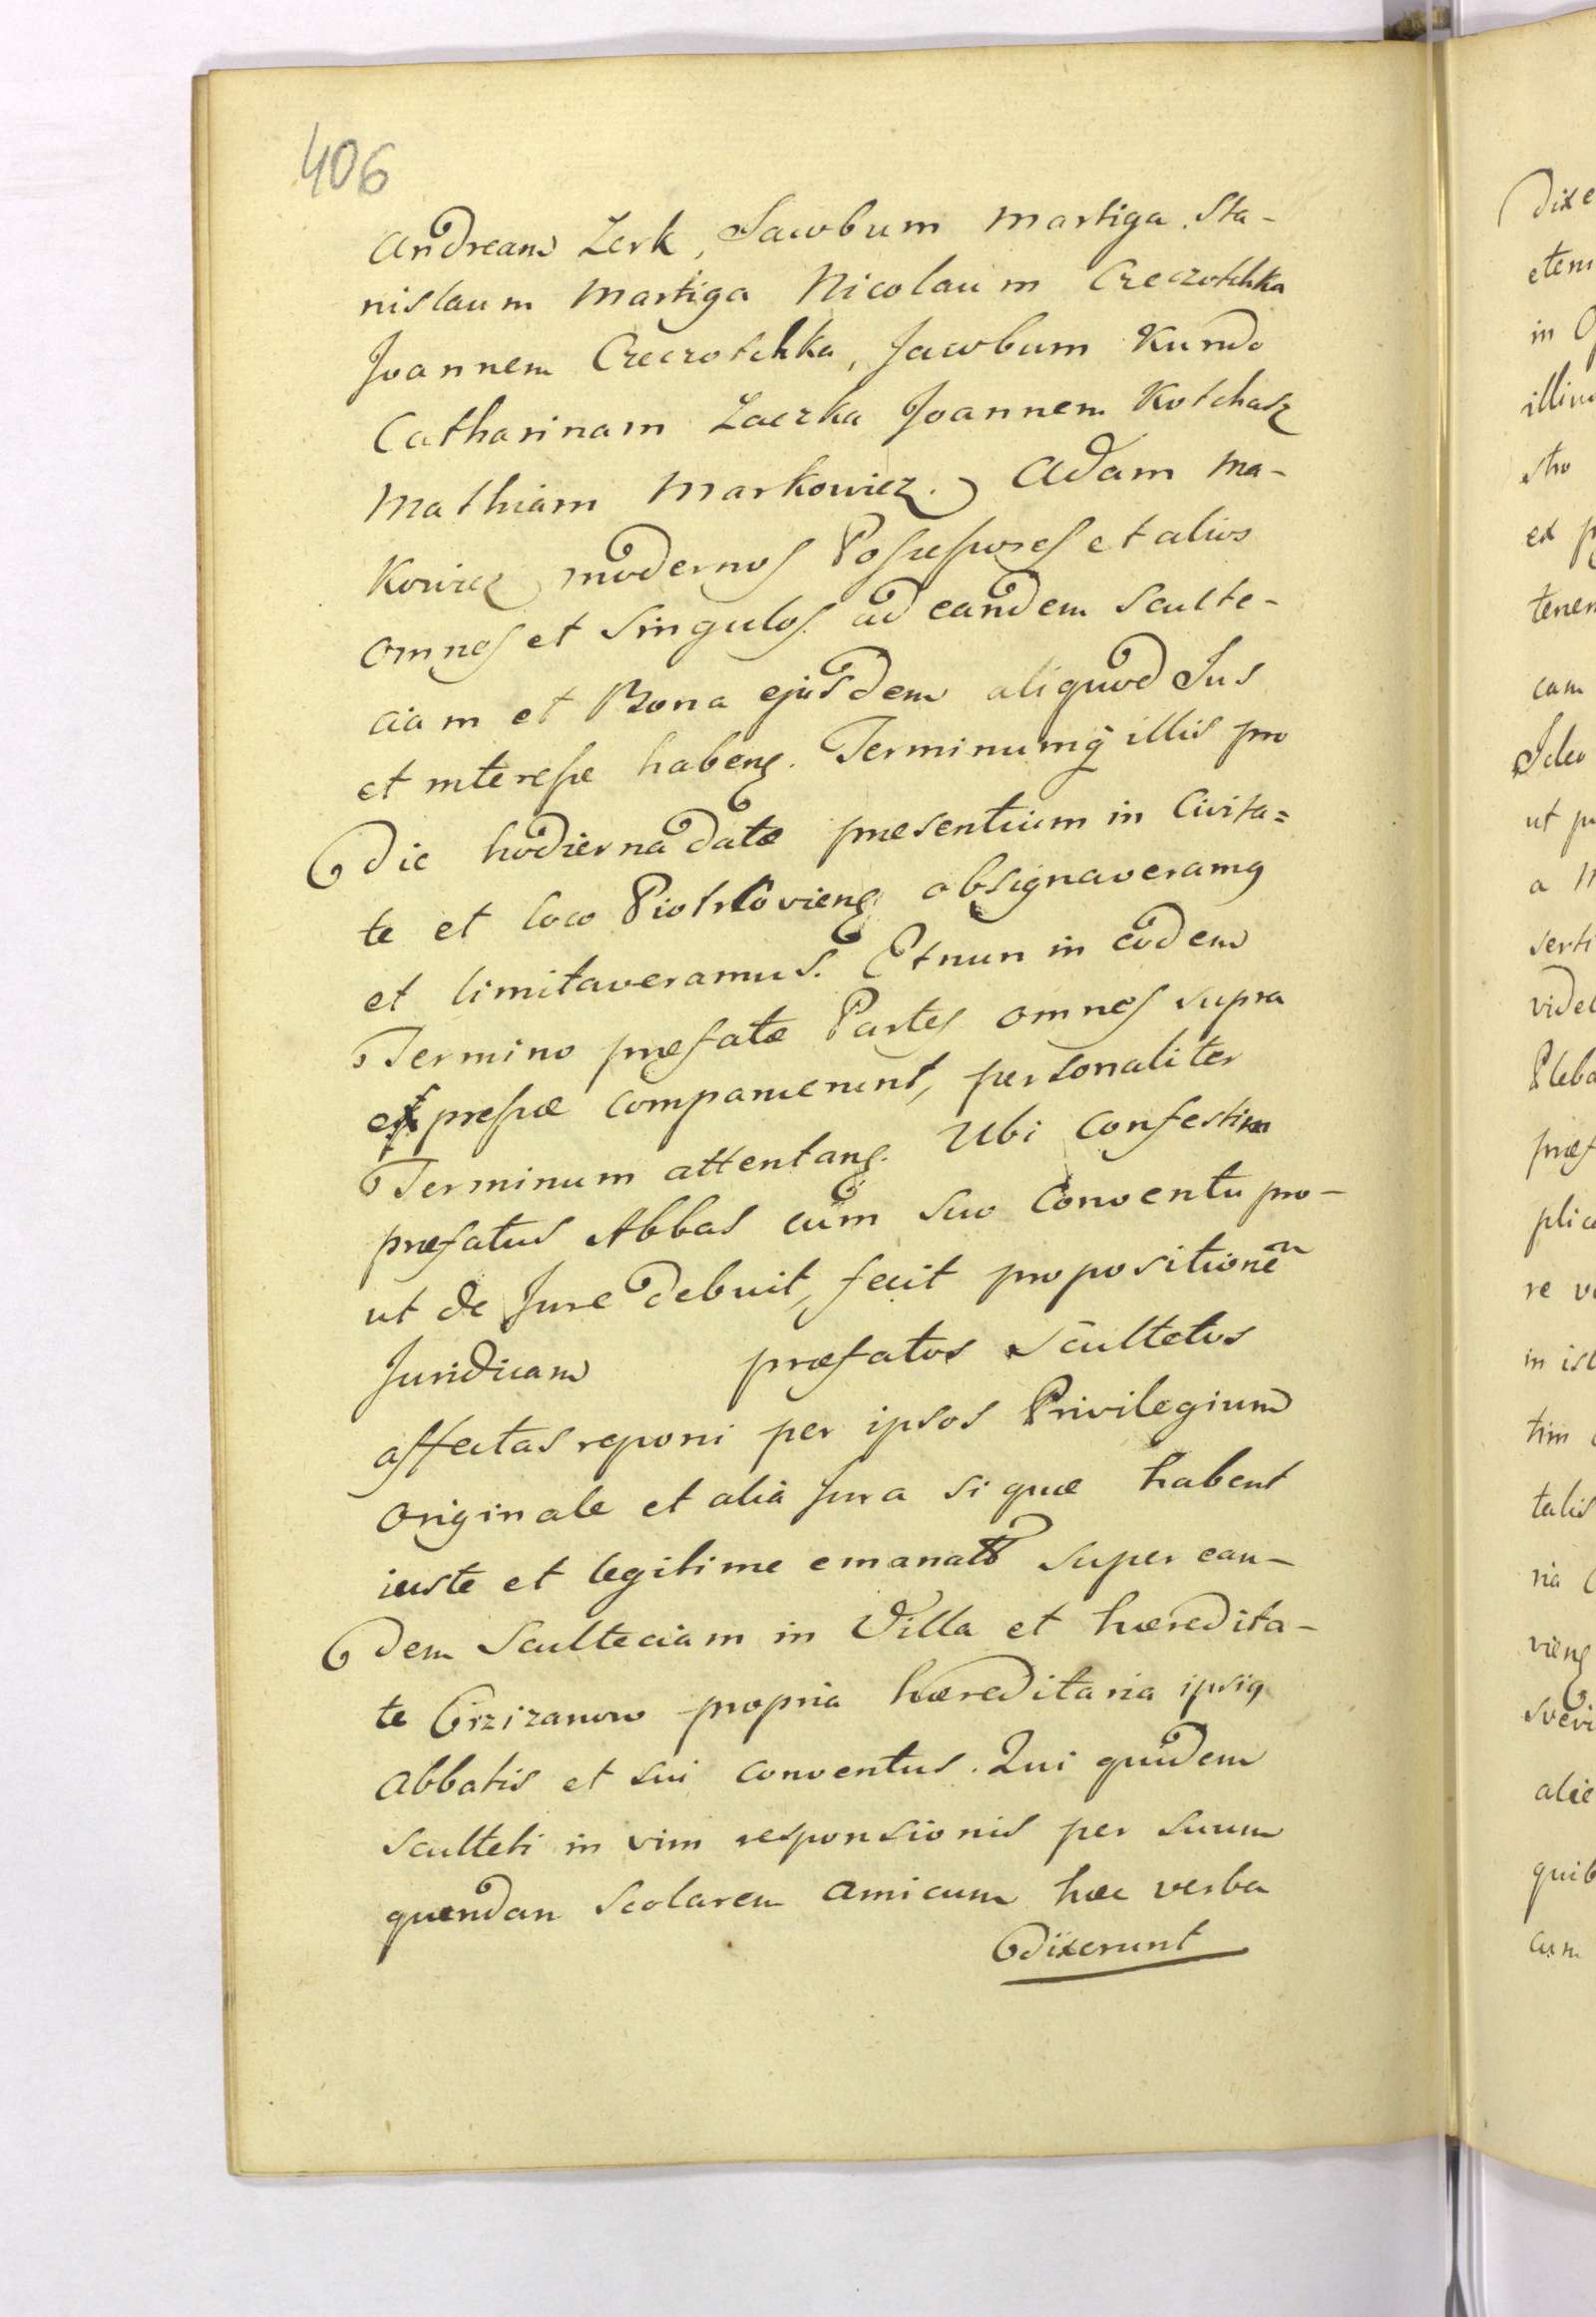 406
Andream Zerk, Jacobum Martiga Sta-
nislaum Martiga Nicolaum Czeczotchka
Joannem Czeczotchka, Jacobum Kundo
Catharinam Zaczka Joannem Kotchasz
Mathiam Markowicz. Adam Ma-
kowicz modernos Possessores et alios
omnes et singulos. ad eandem Sculte-
ciam et Bona ejusdem aliquod Jus
et interesse habenş. Terminumq̃ illis pro
die hodierna datæ presentium in Civita=
te et loco Piotrkovienş absignaveramq
et limitaveramus. Et nun in eodem
Termino præfatæ Partes omnes supra
expressæ comparuerunt, personaliter
Terminum attentanş. Ubi confestim
præfatus Abbas cum suo Conventu pro-
ut de Jure debuit, fecit propositionem
Juridicam præfatos Scultetos
affectas reponi per ipsos Privilegium
Originale et alia Jura si quæ habent
iuste et legitime emanata super ean-
dem Sculteciam in Villa et hæredita-
te Crzizanow propria hæreditaria ipsiq
Abbatis et sui conventus. Qui quidem
Sculteti in vim responsionis per suum
quendan Scolarem Amicum hæc verba
dixerunt
dixe
etem
in O
illiu
stro
ex p
tenen
cam
Ideo
ut p
a M
serti
videl
Pleba
præf
plica
re v
in ist
tim
talis
ria
vienş
svevi
alie
quib
cum